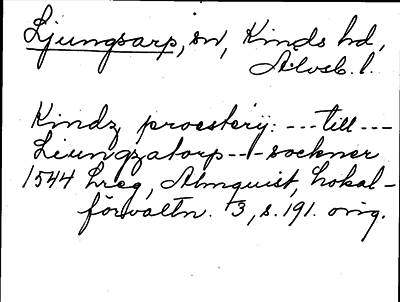 Ljungsarp, sn, Kinds hd,
Älvsb. l.
Kindz proesterij: --- till ---
Liungzatorp --- sockner
1544 hreg, Almquist, Lokal-
förvaltn. 3, s. 191. orig.